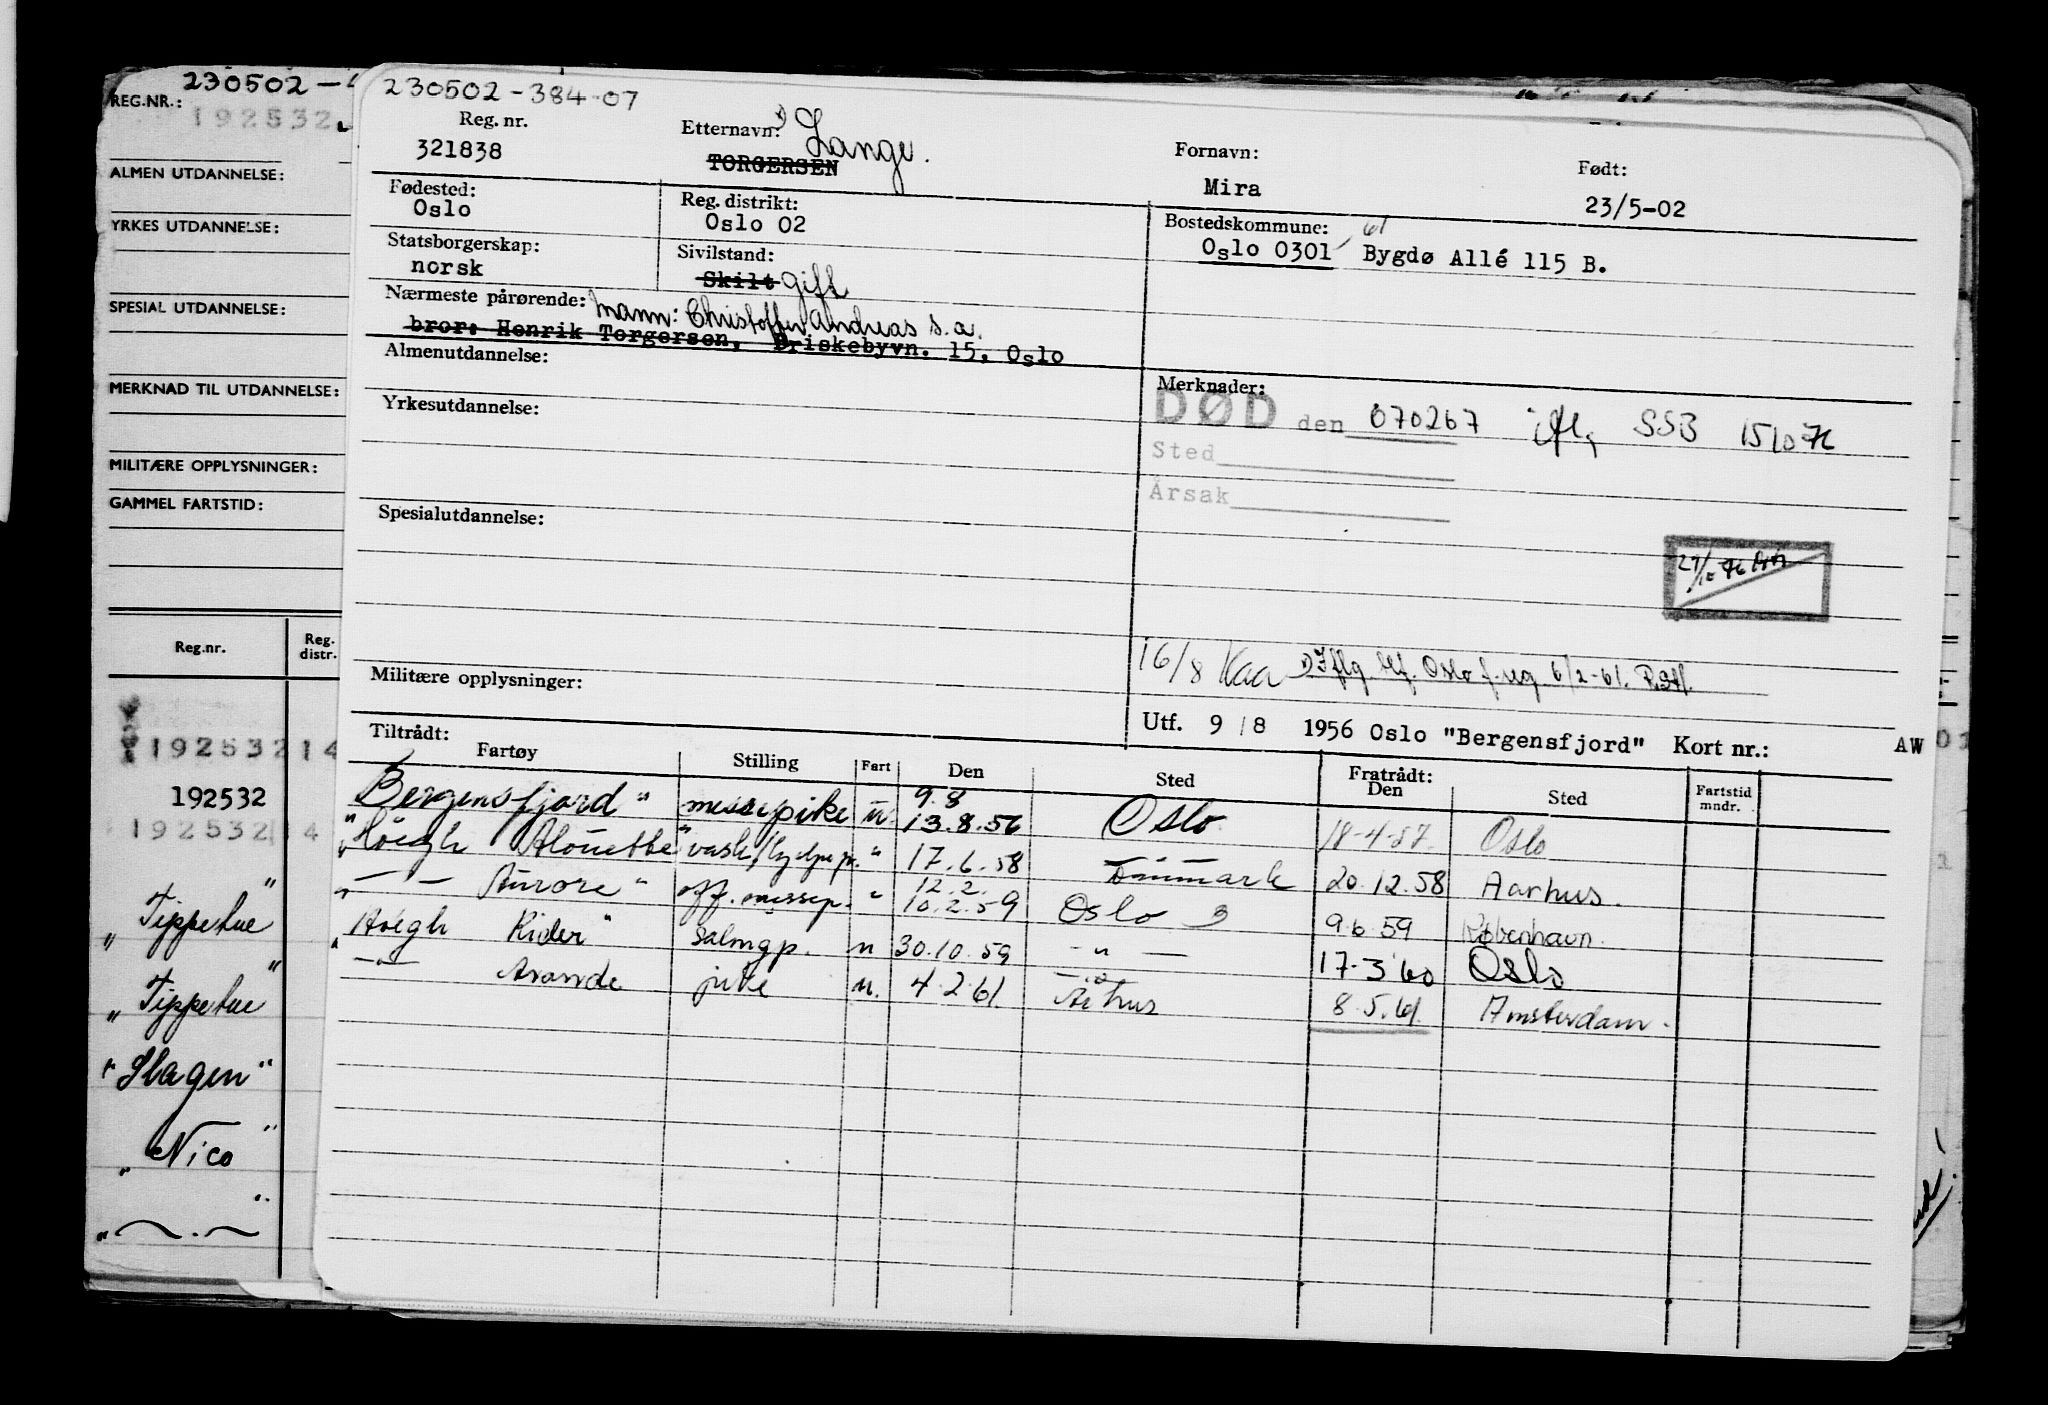 230502-
REG.NR.:
192532
ALMEN UTDANNELSE:
YRKES UTDANNELSE:
SPESIAL UTDANNELSE:
MERKNAD TIL UTDANNELSE:
MILITÆRE OPPLYSNINGER:
GAMMEL FARTSTID:
Reg.nr. Reg. distr.
192532 14
192532
192532 14
"Tippetue"
"Tippetue"
"Slagen"
"Nico"
230502-384-07
Reg. nr. Etternavn: 1) Lange. Fornavn: Født:
321838 TORGERSEN Mira 23/5-02
Fødested: Reg. distrikt: Bostedskommune:
Oslo Oslo 02 Oslo 0301 61 Bygdø Allé 115 B.
Statsborgerskap: Sivilstand:
norsk Skilt gift
Nærmeste pårørende: Mann: Christoffer Andreas s.a.
bror: Henrik Torgersen, Briskebyvn. 15, Oslo
Almenutdannelse: Merknader:
Yrkesutdannelse: DØD den 070267 SSB
Sted
Årsak
Spesialutdannelse:
16/8 Kaa 1) Iflg. Oslo f.reg 6/2-61.
Militære opplysninger:
Utf. 9/8 1956 Oslo "Bergensfjord" Kort nr.: AW
Tiltrådt: Fratrådt:
Fartøy Stilling Fart Den Sted Den Sted Fartstid mndr.
Bergensfjord" messepike u. 9.8 13.8.56 Oslo 18-4-57. Oslo
"Høegh Alouette" " 17.6.58 Danmark 20.12.58 Aarhus.
" — " — Aurore" off. messep. " 12.2. 10.2.59 Oslo 3 9.6.59 København.
"Høegh Rider" salongp. u 30.10.59 — " — 17-3 60 Oslo
— " — pike u. 4.2.61. Århus 8.5.61. Amsterdam.